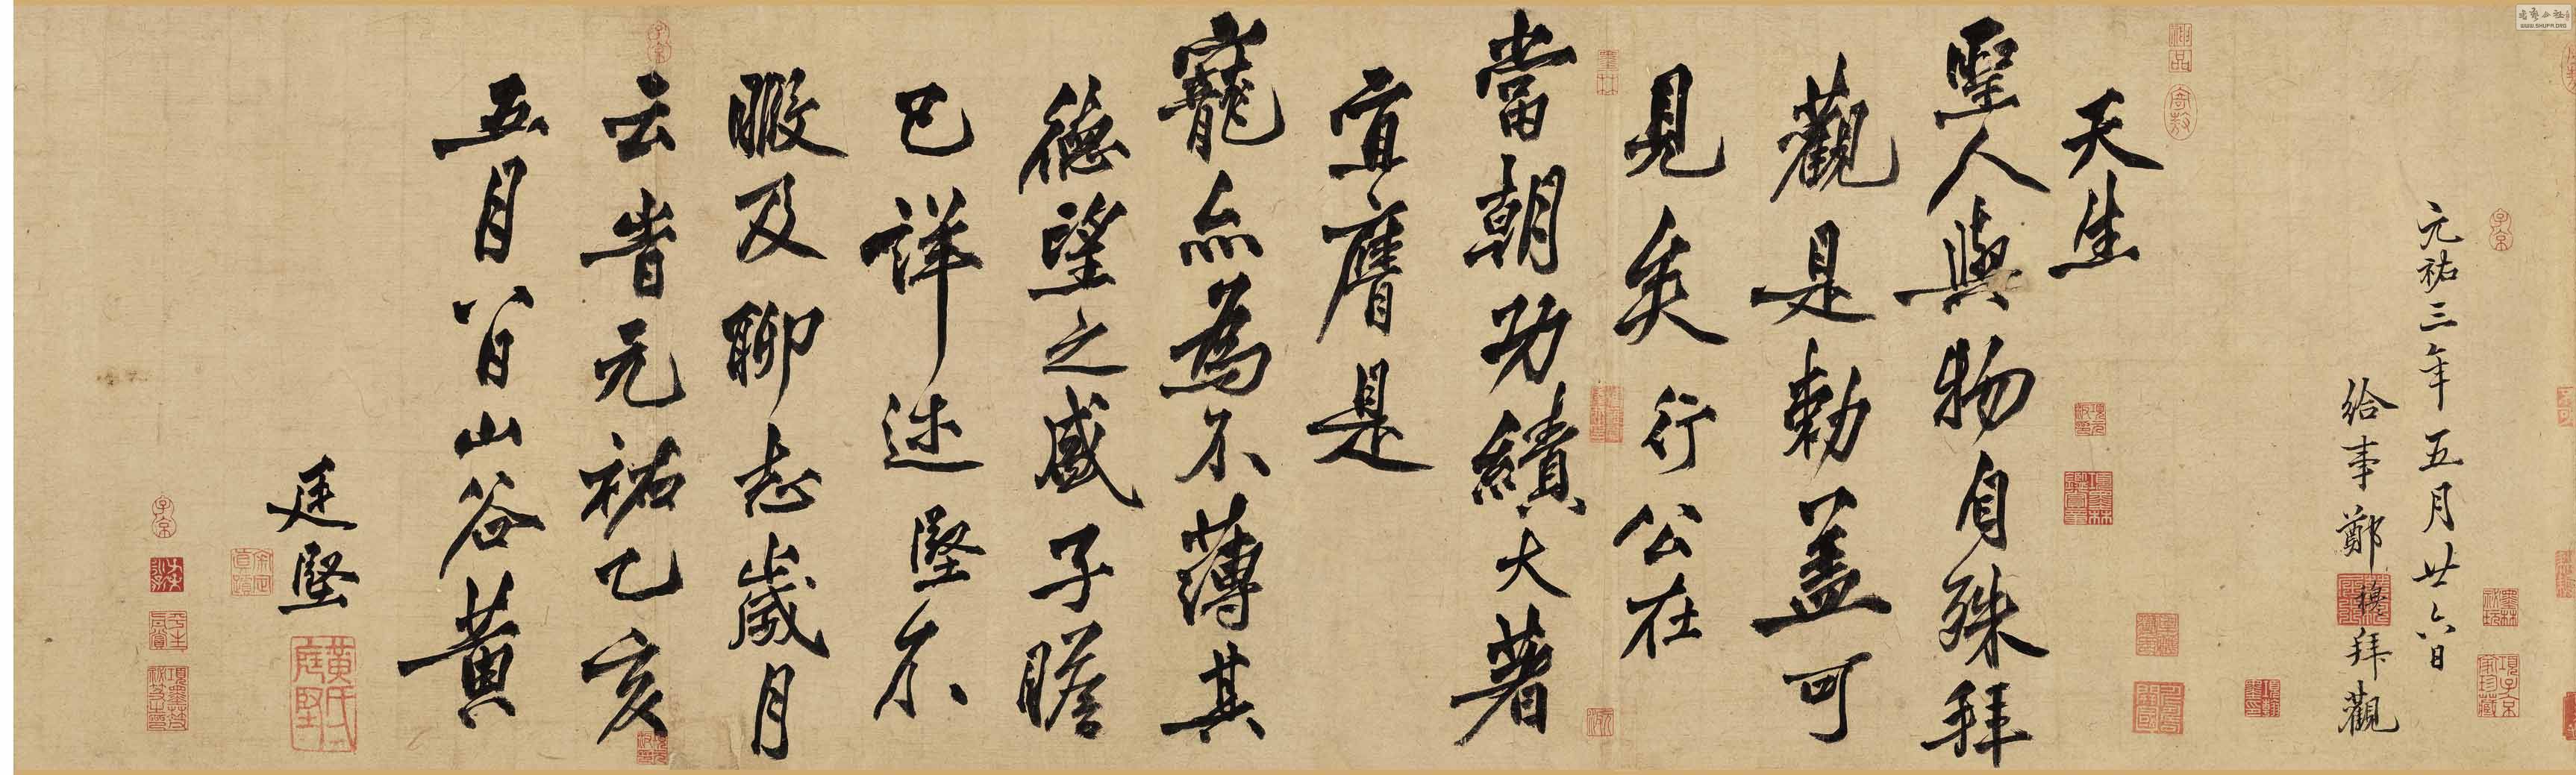 元祐三年五月廿六日
給事鄭穆拜觀
天生
聖人與物自殊拜
觀是勅蓋可
見矣行公在
當朝功績大著
宜膺是
寵命為不薄其
德望之盛子瞻
已詳述堅不
暇及聊志歲月
云昔元祐乙亥
五月八日山谷黃
庭堅
黃氏庭堅
WWW.SHUFA.ORG